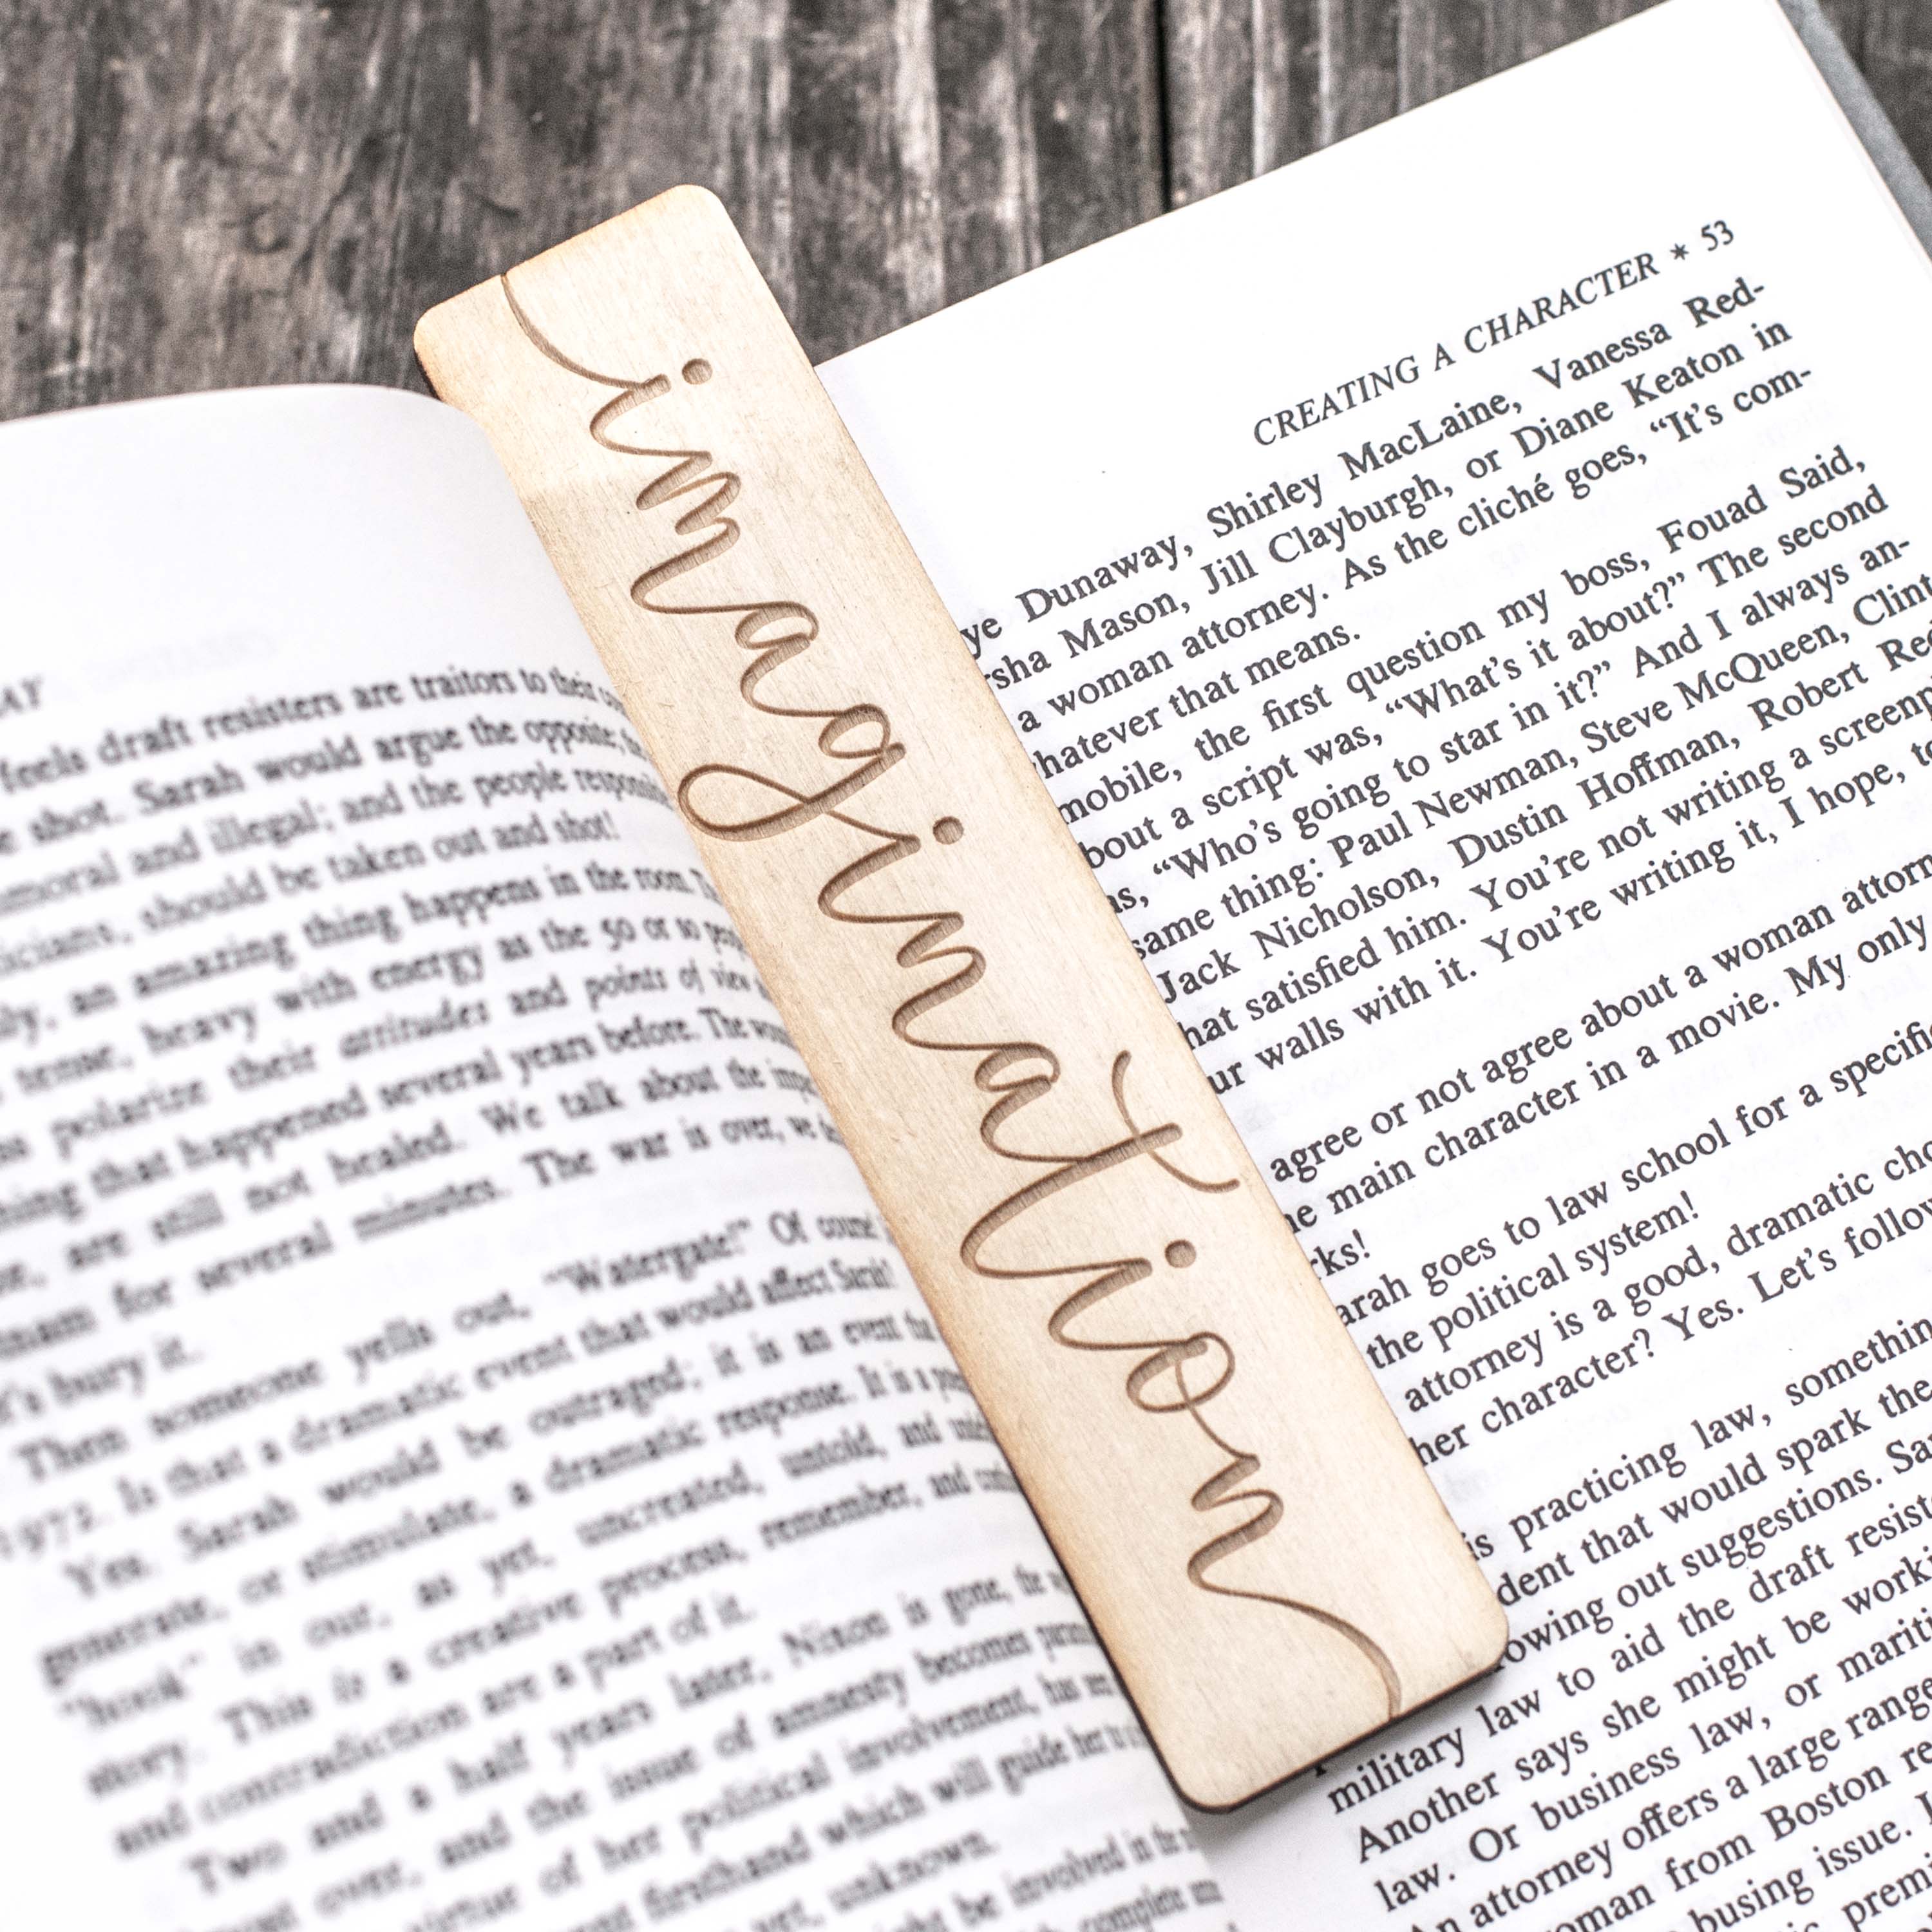 AY
feels draft resisters are traitors to their
shot. Sarah would argue the opposite;
and illegal; and the people
should be taken out and shot!
an amazing thing happens in the room.
tense, heavy with energy as the 50 or so
polarize their attitudes and points of view
thing that happened several years before. The
are still not healed. We talk about the
for several minutes. The war is over, we
bury it.
Then someone yells out, "Watergate!" Of course!
1972. Is that a dramatic event that would affect Sarah?
Yes. Sarah would be outraged; it is an event
generate, or stimulate, a dramatic response. It is a
"hook" in our, as yet, uncreated, untold, and
story. This is a creative process, remember, and
and contradiction are a part of it.
Two and a half years later, Nixon is gone, the
over, and the issue of amnesty becomes
virtue of her political involvement, has
firsthand which will guide her to
yet, unknown.
be involved in the
complete
imagination
CREATING A CHARACTER * 53
ye Dunaway, Shirley MacLaine, Vanessa Red-
rsha Mason, Jill Clayburgh, or Diane Keaton in
a woman attorney. As the cliché goes, “It’s com-
hatever that means.
mobile, the first question my boss, Fouad Said,
bout a script was, “What’s it about?” The second
s, “Who’s going to star in it?” And I always an-
same thing: Paul Newman, Steve McQueen, Clint
Jack Nicholson, Dustin Hoffman, Robert Re
hat satisfied him. You’re not writing a screenp
ur walls with it. You’re writing it, I hope, t
agree or not agree about a woman attorn
e main character in a movie. My only
rks!
arah goes to law school for a specifi
the political system!
attorney is a good, dramatic cho
her character? Yes. Let’s follow
is practicing law, somethin
dent that would spark the
owing out suggestions. Sa
military law to aid the draft resist
Another says she might be worki
law. Or business law, or mariti
An attorney offers a large range
oman from Boston re
busing issue.
premi